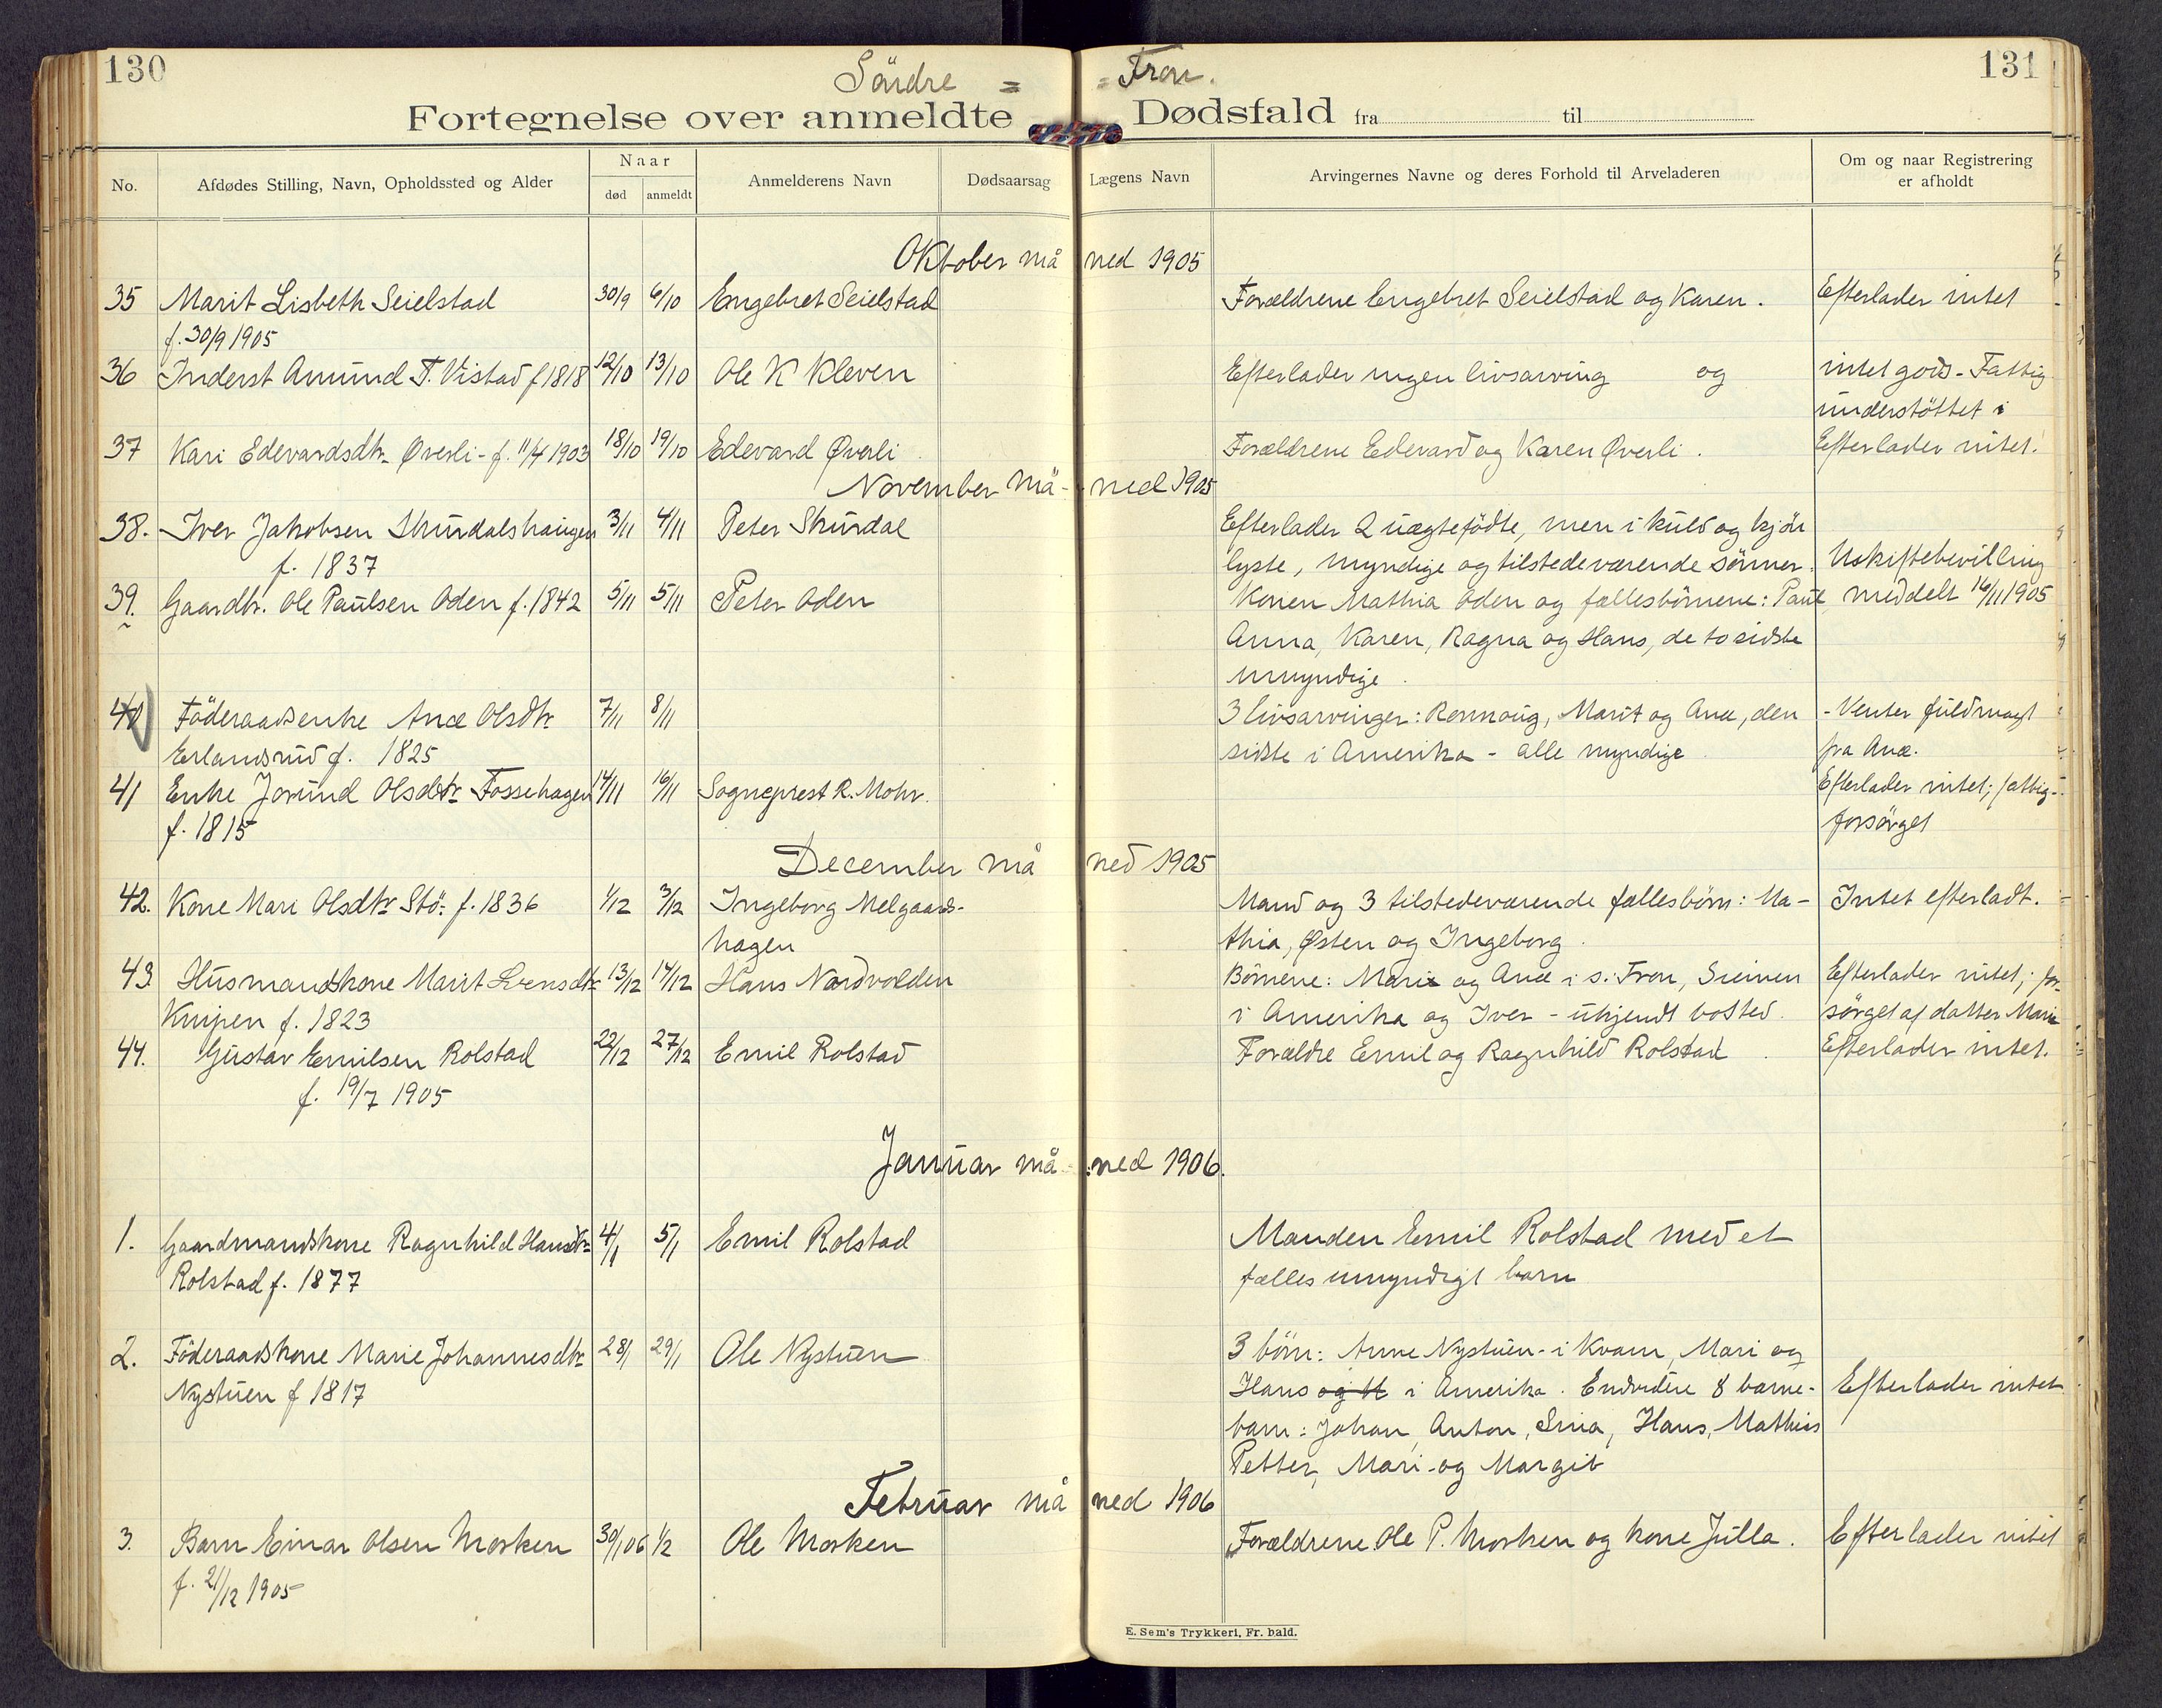 130
Söndre = = Fron.
131
Fortegnelse over anmeldte Dødsfald fra til
No. Afdødes Stilling, Navn, Opholdssted og Alder Naar død anmeldt Anmelderens Navn Dødsaarsag Lægens Navn Arvingernes Navne og deres Forhold til Arveladeren Om og naar Registrering er afholdt
Oktober må ned 1905
35 Marit Lisbeth Seielstad 30/9 6/10 Engebret Seielstad Forældrene Engebret Seielstad og Karen. Efterlader intet
f. 30/9 1905
36 Inderst Amund T. Vistad f 1818 12/10 13/10 Ole K Kleven Efterlader ingen livsarving og intet gods - Fattig
understöttet
37 Kari Edevardsdtr. Øverli - f. 11/4 1903 18/10 19/10 Edevard Øverli Forældrene Edevard og Karen Øverli. Efterlader intet.
November må- ned 1905
38. Iver Jakobsen Skurdalshaugen 3/11 4/11 Peter Skurdal Efterlader 2 uægtefödte, men i kuld og kjön
f. 1837 lyste, myndige og tilstedeværende sönner. Uskiftebevilling
39. Gaardbr. Ole Paulsen Oden f. 1842 5/11 5/11 Peter Oden Konen Mathia Oden og fællesbörnene: Paul, meddelt 16/11 1905
Anna, Karen, Ragna og Hans, de to sidste
umyndige.
40 Föderaadsenke Anæ Olsdtr 7/11 8/11 3 livsarvinger: Rønnoug, Marit og Anæ, den - Venter fuldmagt
Erlandsrud f. 1825 sidste i Amerika - alle myndige fra Anæ.
41 Enke Jorund Olsdtr Fossehagen 14/11 16/11 Sogneprest R. Mohr. Efterlader intet; fattig-
f. 1815 forsörget
December må ned 1905
42. Kone Mari Olsdtr Stö: f. 1836 1/12 3/12 Ingeborg Melgaards- Mand og 3 tilstedeværende fællesbörn: Ma- Intet efterladt.
hagen thia, Østen og Ingeborg.
43 Husmandskone Marit Svensdtr 13/12 14/12 Hans Nordvolden Börnene: Mari og Anæ i S. Fron, Steinen Efterlader intet; for-
Knipen f. 1823 i Amerika og Iver - ukjendt bosted. sörget af datter Mari
44. Gustav Emilsen Rolstad 22/12 27/12 Emil Rolstad Forældre Emil og Ragnhild Rolstad. Efterlader intet.
f. 19/7 1905
Januar må- ned 1906.
1. Gaardmandskone Ragnhild Hansdtr 4/1 5/1 Emil Rolstad Manden Emil Rolstad med et
Rolstad f. 1877 fælles umyndigt barn
2. Föderaadskone Marie Johannesdtr 28/1 29/1 Ole Nystuen 3 börn: Anne Nystuen - i Kvam, Mari og
Nystuen f 1817 Hans og M i Amerika. Endvidere 8 barne- Efterlader intet
barn: Johan, Anton, Sina, Hans, Mathias
Petter, Mari og Margit
Februar må ned 1906
3. Barn Einar Olsen Morken 30/1 06 1/2 Ole Morken Forældrene Ole P. Morken og kone Julla. Efterlader intet
f. 21/12 1905
E. Sem's Trykkeri, Fr. hald.